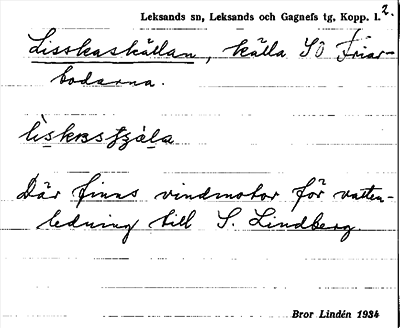 Leksands sn, Leksands och Gagnefs tg, Kopp. l. 2.
Lisskaskällan, källa SO Friar-
bodarna.
Där finns vindmotor för vatten-
ledning till S. Lindberg
Bror Lindén 1934